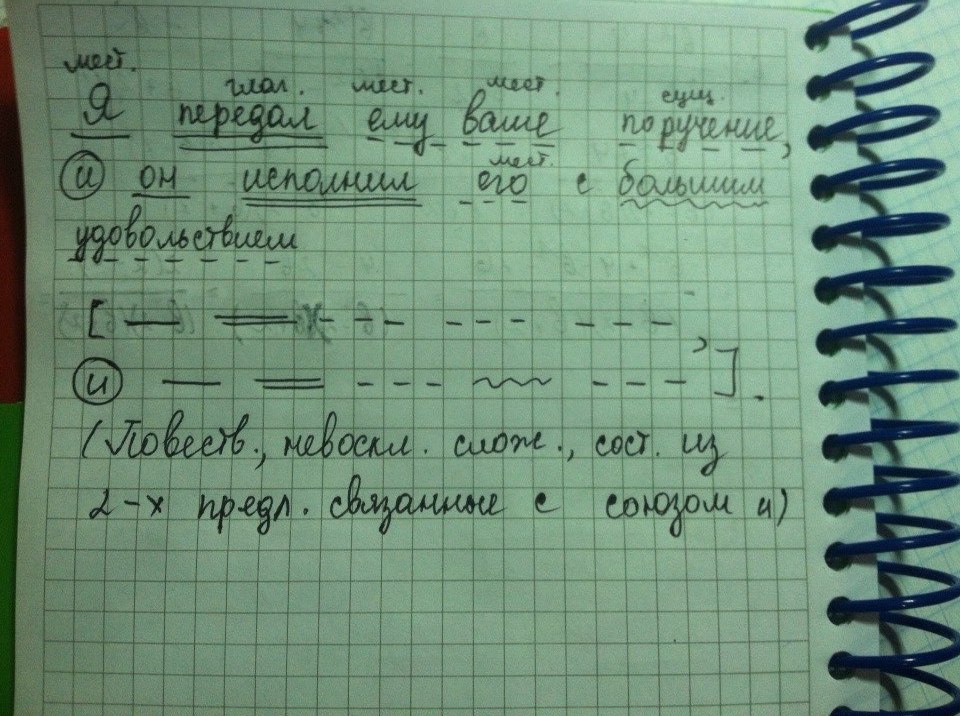 мест.
глаг. мест. мест. сущ.
Я передал ему ваше поручение,
мест.
и он исполнил его с большим
удовольствием
[ , 
и ].
(Повеств., невоскл. слож., сост. из
2-х предл. связанные с союзом и)